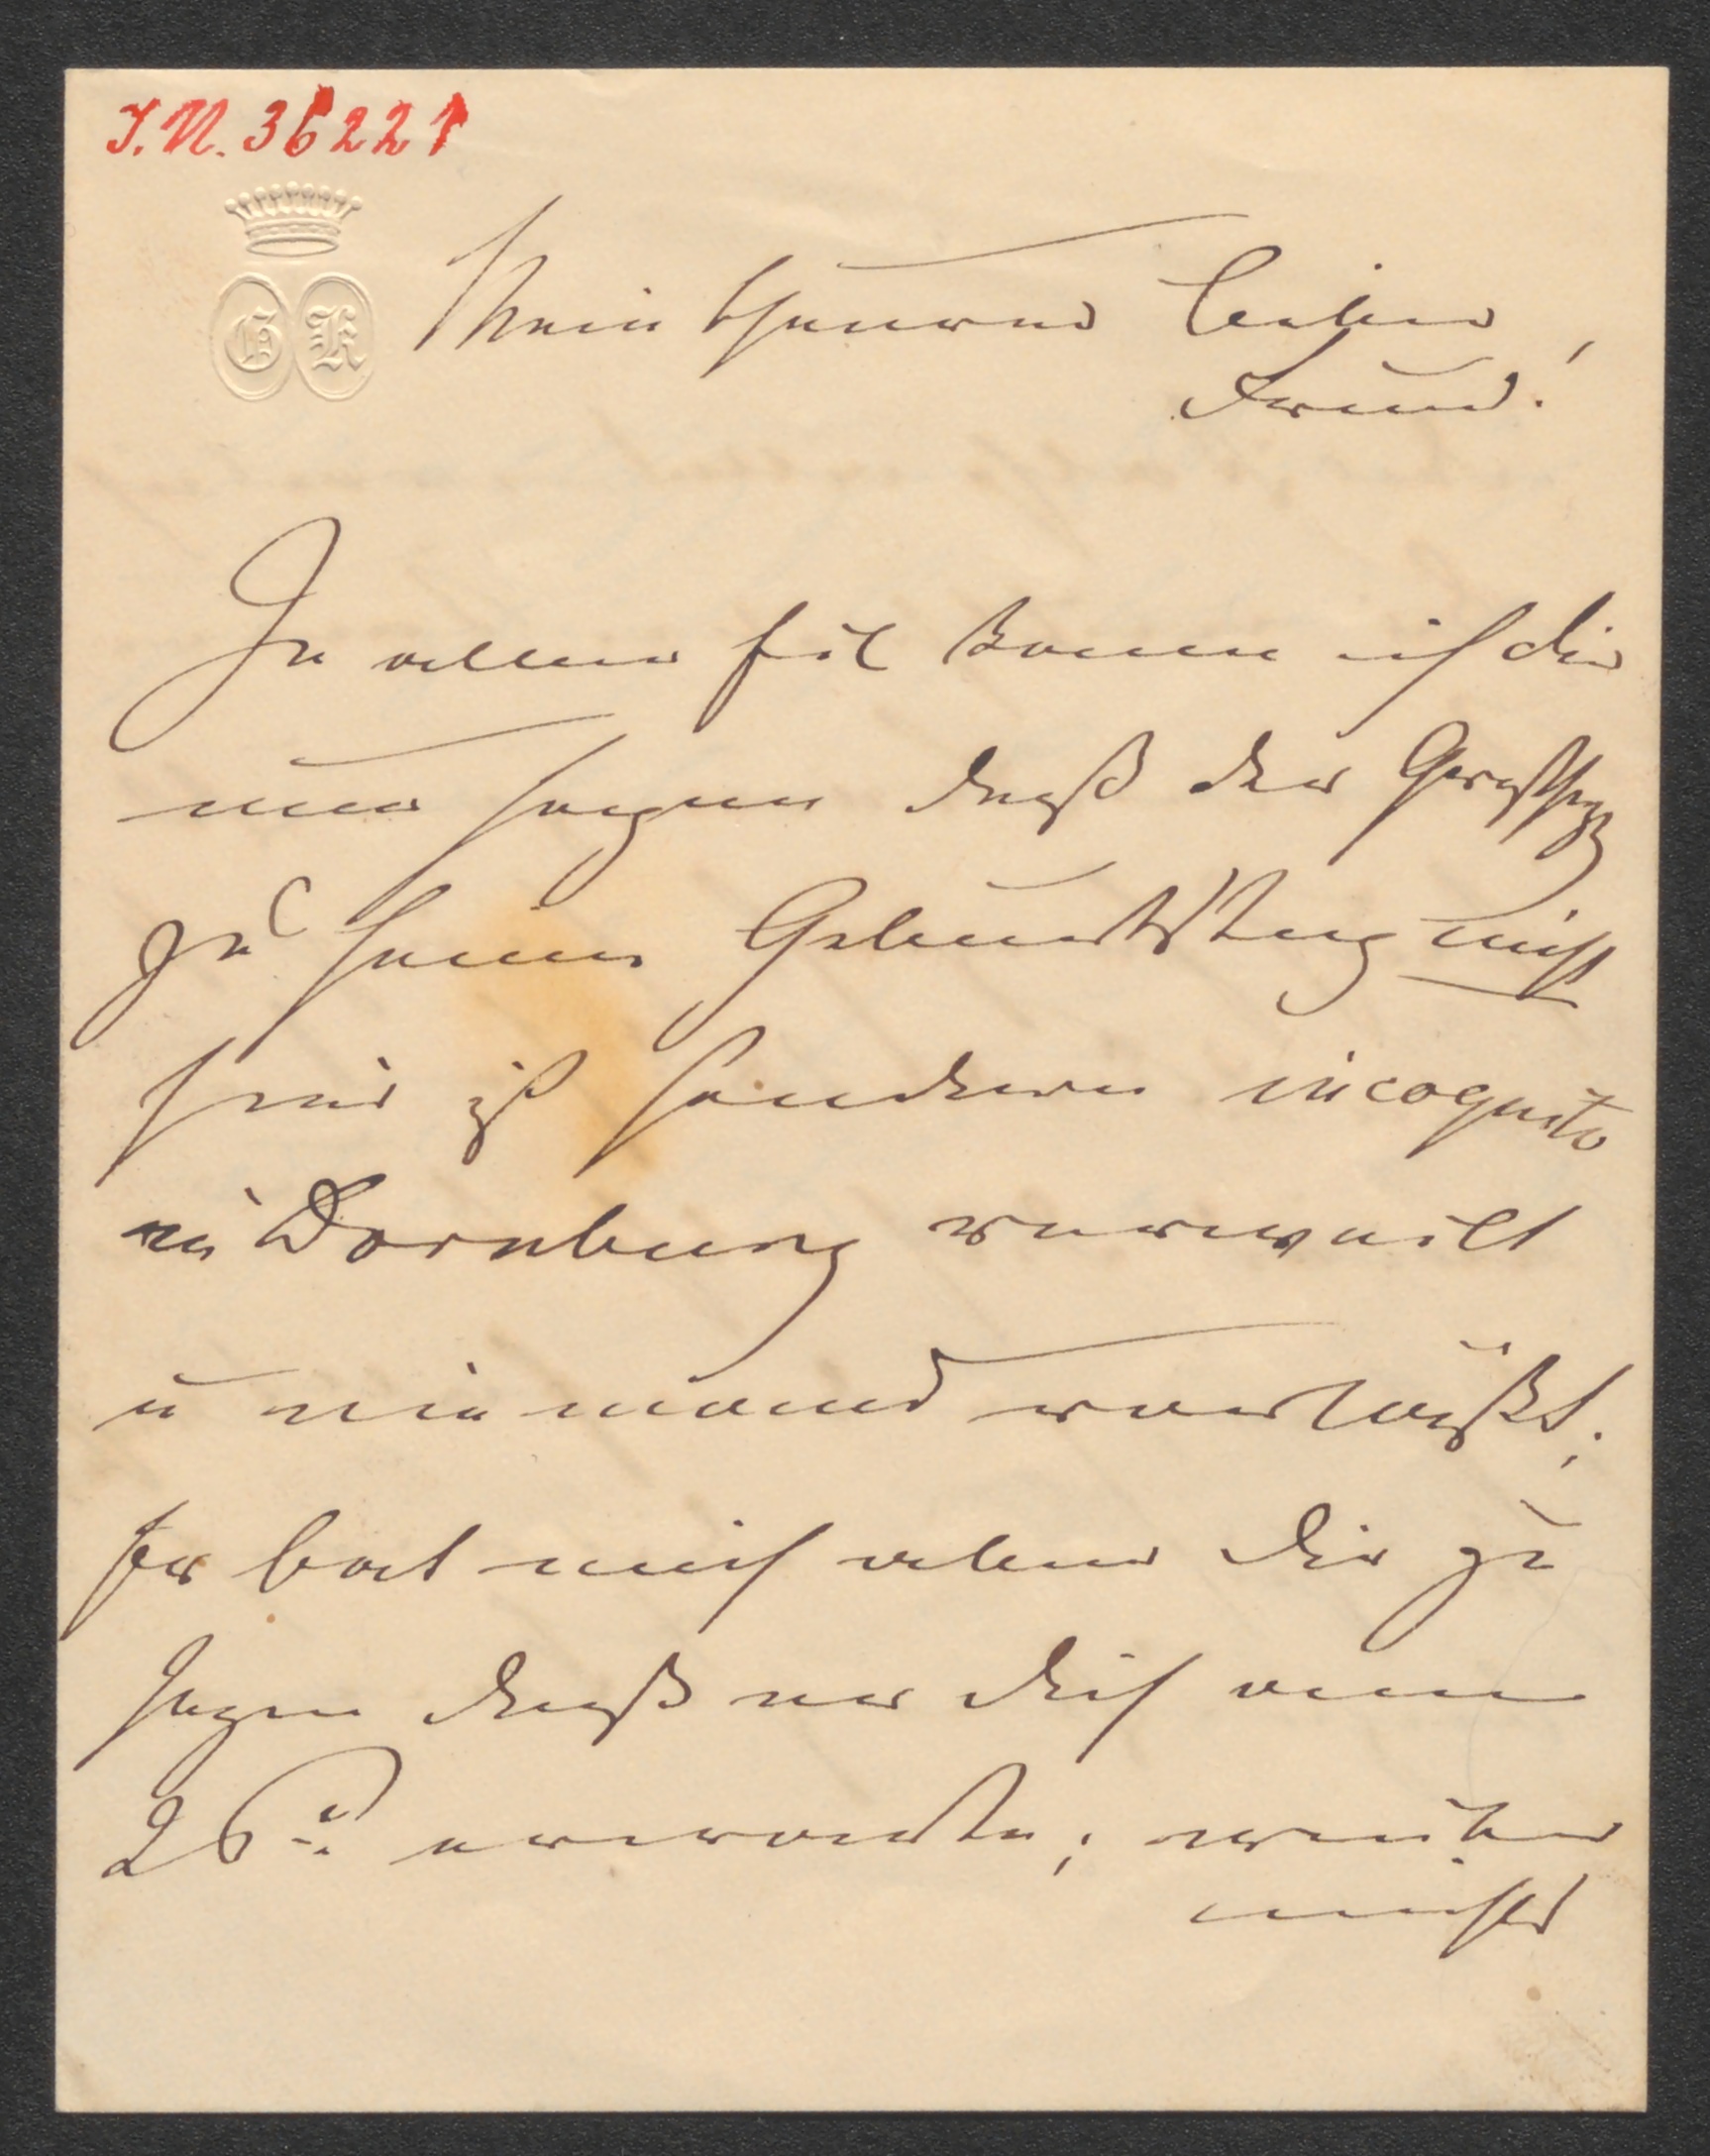 I.N. 36221
G K
Mein theurer lieber,
Freund!
In aller Eil kann ich dir
nur sagen daß der Großherz
zu seinem Geburtstag nicht
hier ist sondern incognito
in Dornburg verweilt
u niemand verläßt;
Er bat mich aber dir zu
sagen daß er dich am
26ᵗ erwarte; weiter
nichts